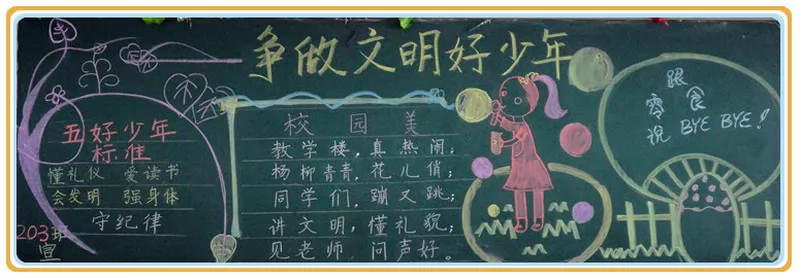 争做文明好少年
五好少年
标准
懂礼仪 爱读书
会发明 强身体
守纪律
203班
宣
校园美
教学楼，真热闹；
杨柳青青，花儿俏；
同学们，蹦又跳；
讲文明，懂礼貌；
见老师，问声好。
跟
零食
说 BYE BYE！